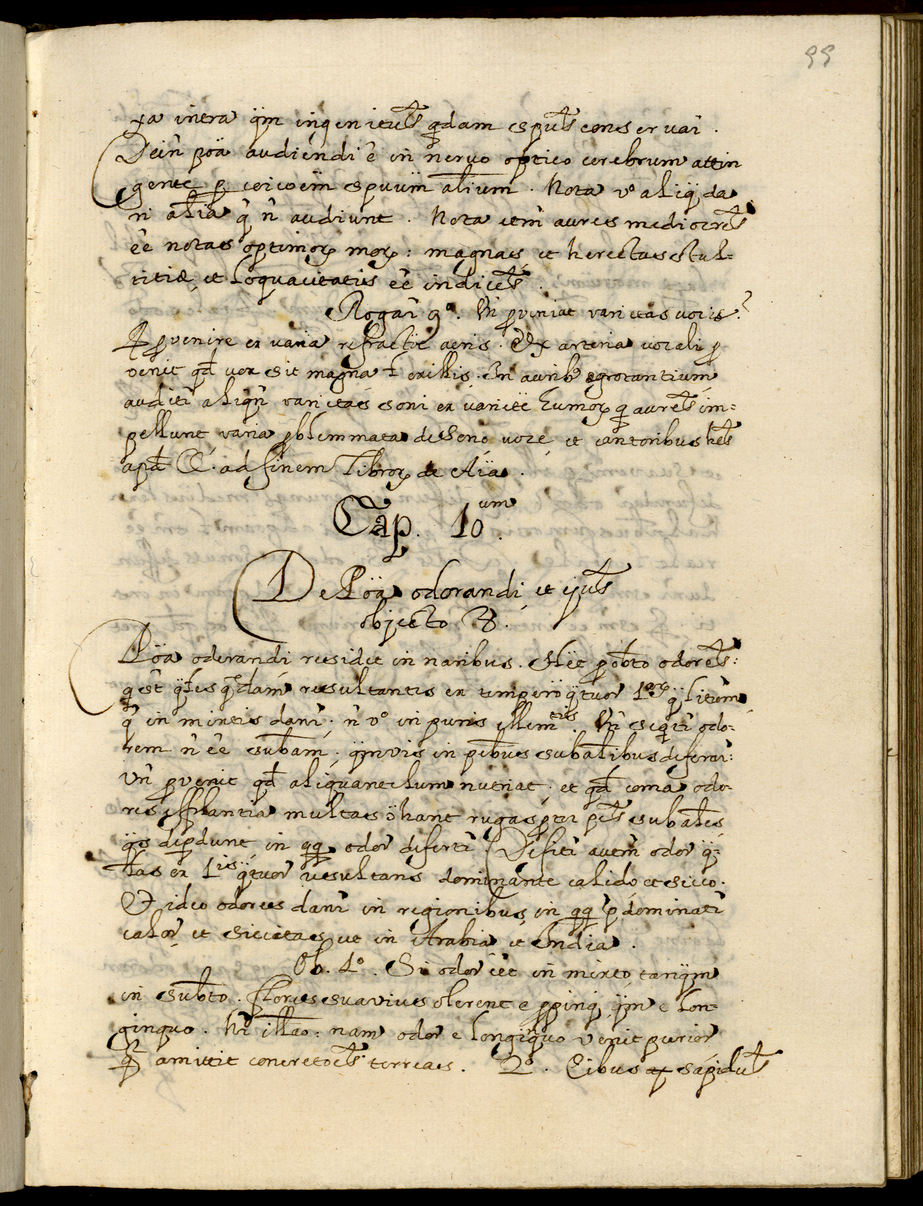 99
xa intra q̃m ingenitus q̃dam spũs conservat̃ .
Dein p̃oa audiendi ẽ in nervo optico cerebrum attin
gente p coicoẽm spuũm alium . Nota vº aliq̃ da
ri alia q̃ ñ audiunt . Nota itm̃ aures mediocres
ẽe notas optimoꝝ moꝝ : magnas et herectas stul-
titiæ, et loquacitatis ẽe indices .
Rogat̃ 9º. Ũn proveniat varietas vocis ?
provenire ex varia refractiẽ aeris . Ex arteria vocali p
venit qd̃ vox sit magna t̃ exilis . In auribꝰ egrotantium
auditt̃ aliqñ varietas soni ex varietẽ humoꝝ q̃ aures im-
pellunt varia problemmata de sono voce et cantoribus hẽs
apd̃ C. ad finem Libroꝝ de Aĩa .
Cap. 10um.
De Põa odorandi et ejus
objecto &.
Põa odorandi residet in naribus . Hẽt p obto odores :
q̃ est q̃tas q̃dam resultantis ex temperiẽ q̃tuor 1arꝝ q̃litum
q̃ in mixtis dant̃ ; ñ vº in puris illemtis . Ũn seqt̃ odo-
rem ñ ẽe subam̃ ; q̃mvis in ptibus subalibus deferat̃ :
vñ provenit qd̃ aliquantulum nutriat ; et qd̃ coma odo-
ris efflantia multas õhant rugas ptr ptes subales
q̃s dipdunt in qq̃ odor defertt̃ Difitt̃ autem odor q̃-
tas ex 1is q̃tuor resultans dominante calido et sicco .
Et ideo odores dant̃ in regionibus in qq̃ p̃dominatt̃
calor et siccitas ut in Arabia et India .
Ob. 1º . Si odor ẽet in mixto tanq̃m
in subto . flores suavius olerent e ppinq̃ q̃m e lon-
ginquo . Nº illao : nam odor e longiquo venit purior
q̃ amittit concretoes terreas . 2º . Cibus sapidus